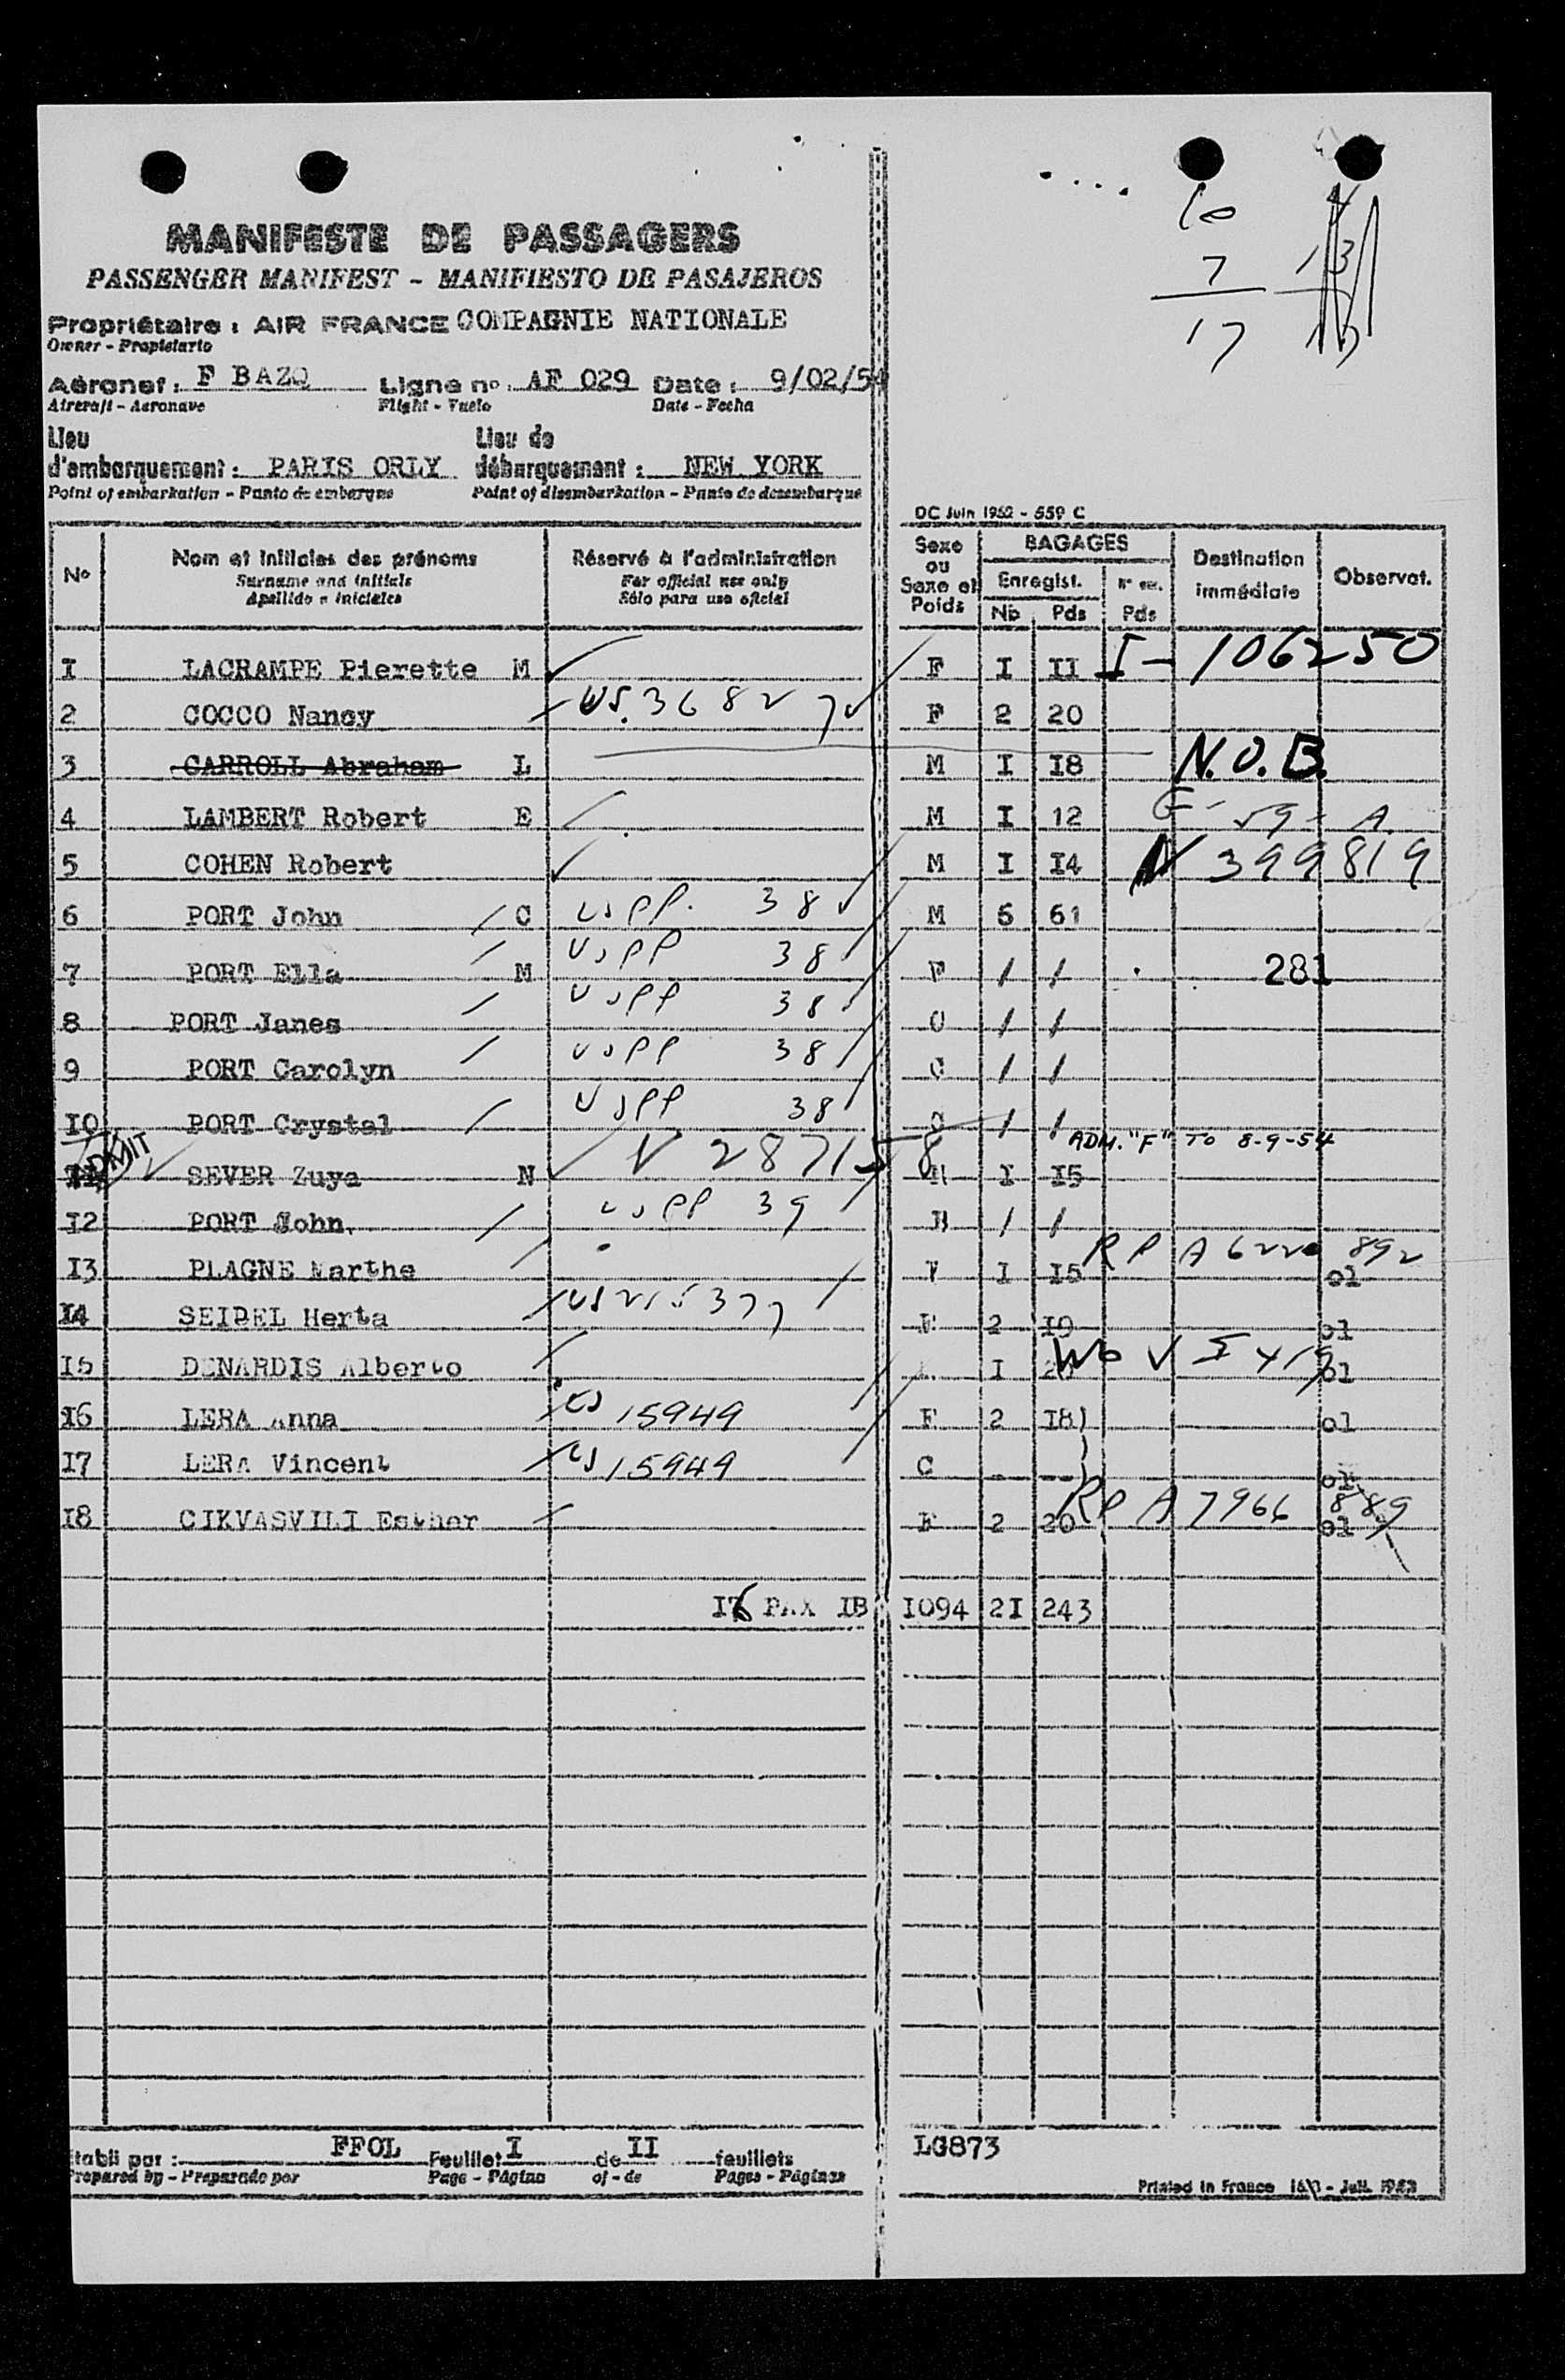 10 4
7 13
17 17
MANIFESTE DE PASSAGERS
PASSENGER MANIFEST - MANIFIESTO DE PASAJEROS
Propriétaire : AIR FRANCE COMPAGNIE NATIONALE
Owner - Propietario
Aéronef : F BAZO Ligne nº : AF 029 Date : 9/02/54
Aircraft - Aeronave Flight - Vuelo Date - Fecha
Lieu Lieu de
d'embarquement : PARIS ORLY débarquement : NEW YORK
Point of embarkation - Punto de embarque Point of disembarkation - Punto de desembarque
DC Juin 1952 - 559 C
Nº Nom et initiales des prénoms Réservé à l'administration Sexe ou Sexe et Poids BAGAGES Destination immédiate Observat.
Surname and initials For official use only Enregist.
Apellido e iniciales Sólo para uso oficial Nb Pds Pds
I LACRAMPE Pierette M F I II I - 106250
2 COCCO Nancy US. 36827 F 2 20
3 CARROLL Abraham L M I I8 N.O.B.
4 LAMBERT Robert E M I 12 G- 59 - A.
5 COHEN Robert M I I4 N 399819
6 PORT John C USPP. 38 M 6 61
7 PORT Ella M USPP 38 F / / 281
8 PORT Janes USPP 38 C / /
9 PORT Carolyn USPP 38 C / /
IO PORT Crystal USPP 38 C / /
ADM. "F" TO 8-9-54
ADMIT SEVER Zuya N V 287158 M I I5
I2 PORT John. USPP 39 / /
I3 PLAGNE Marthe F I I5 RP A6220 892 ol
I4 SEIDEL Herta US 215377 F 2 I9 ol
I5 DENARDIS Alberto I ol
I6 LERA Anna US 15949 F 2 I8) ol
I7 LERA Vincent US 15949 C - -) ol
I8 CIKVASVILI Esther F 2 20 RP A7966 889 ol
I6 PAX IB I094 2I 243
Etabli par : FFOL Feuillet I de II feuillets LG873
Prepared by - Preparado por Page - Página of - de Pages - Páginas
Printed in France